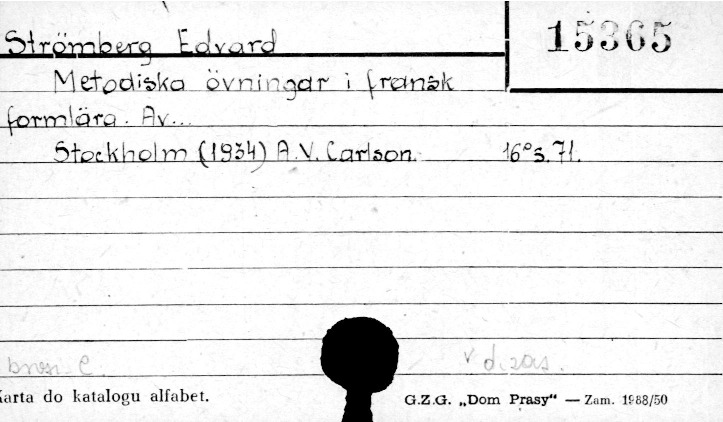 Strömberg Edvard
15365
Metodiska övningar i fransk
formlära. Av...
Stockholm (1934) A.V. Carlson. 16° s. 71.
Karta do katalogu alfabet.
G.Z.G. „Dom Prasy“ — Zam. 1988/50